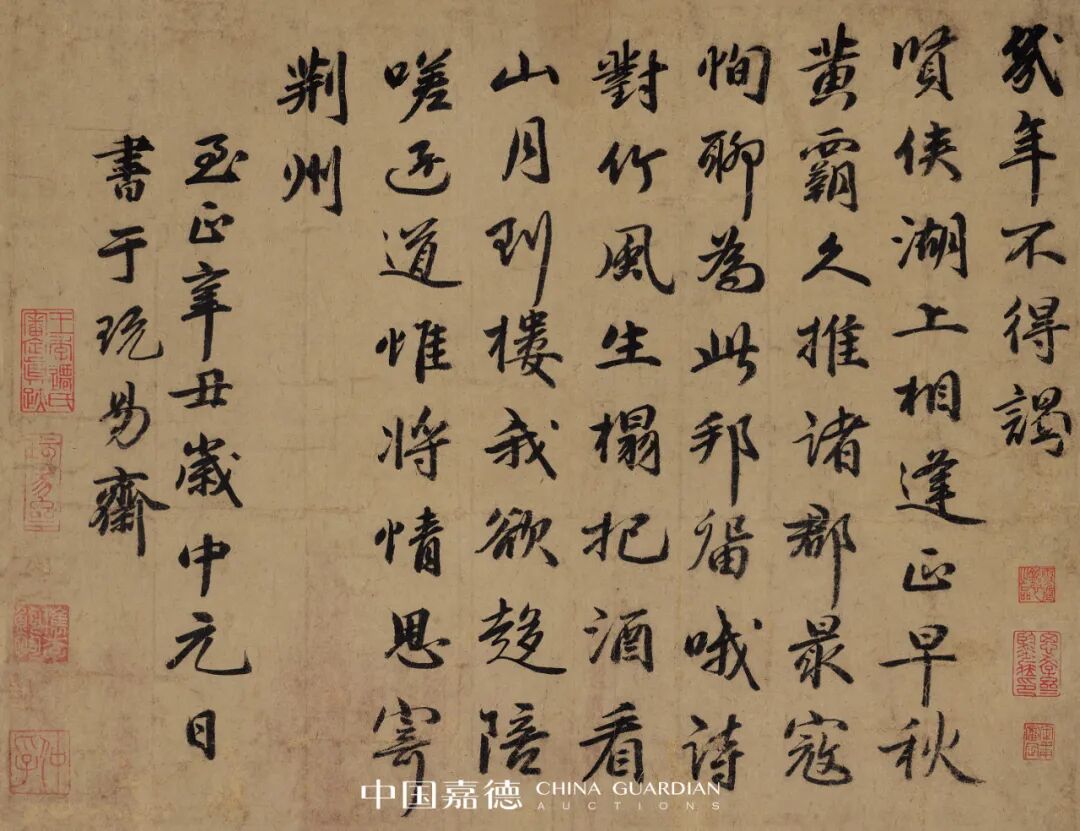 幾年不得謁
賢侯湖上相逢正早秋
黄霸久推諸郡最寇
恂聊為此邦留哦詩
對竹風生榻把酒看
山月到樓我欲趍陪
嗟迂道惟将情思寄
荆州
至正辛丑歲中元日
書于玩易齋
中国嘉德 CHINA GUARDIAN
AUCTIONS